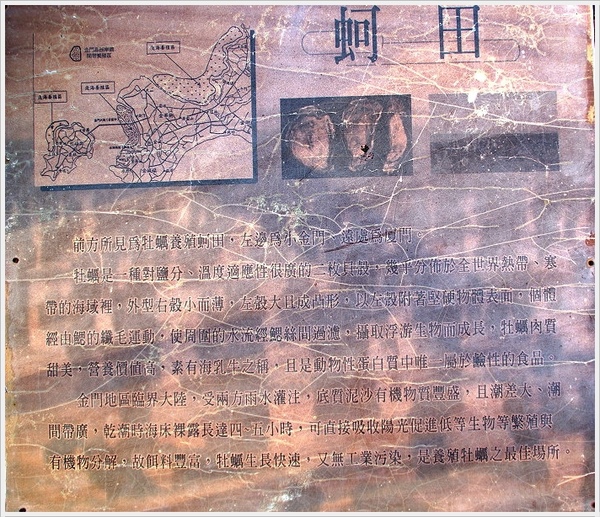 蚵田
前方所見為牡蠣養殖蚵田，左邊為小金門，遠處為廈門
牡蠣是一種對鹽分、溫度適應性很廣的二枚貝殼，幾乎分佈於全世界熱帶、寒
帶的海域裡，外型右殼小而薄，左殼大且成凸形，以左殼附著堅硬物體表面，個體
經由鰓的纖毛運動，使周圍的水流經鰓絲間過濾，攝取浮游生物而成長，牡蠣肉質
甜美，營養價值高，素有海乳牛之稱，且是動物性蛋白質中唯一屬於鹼性的食品。
金門地區臨界大陸，受兩方雨水灌注，底質泥沙有機物質豐盛，且潮差大、潮
間帶廣，乾潮時海床裸露長達四、五小時，可直接吸收陽光促進低等生物等繁殖與
有機物分解，故餌料豐富，牡蠣生長快速，又無工業污染，是養殖牡蠣之最佳場所。